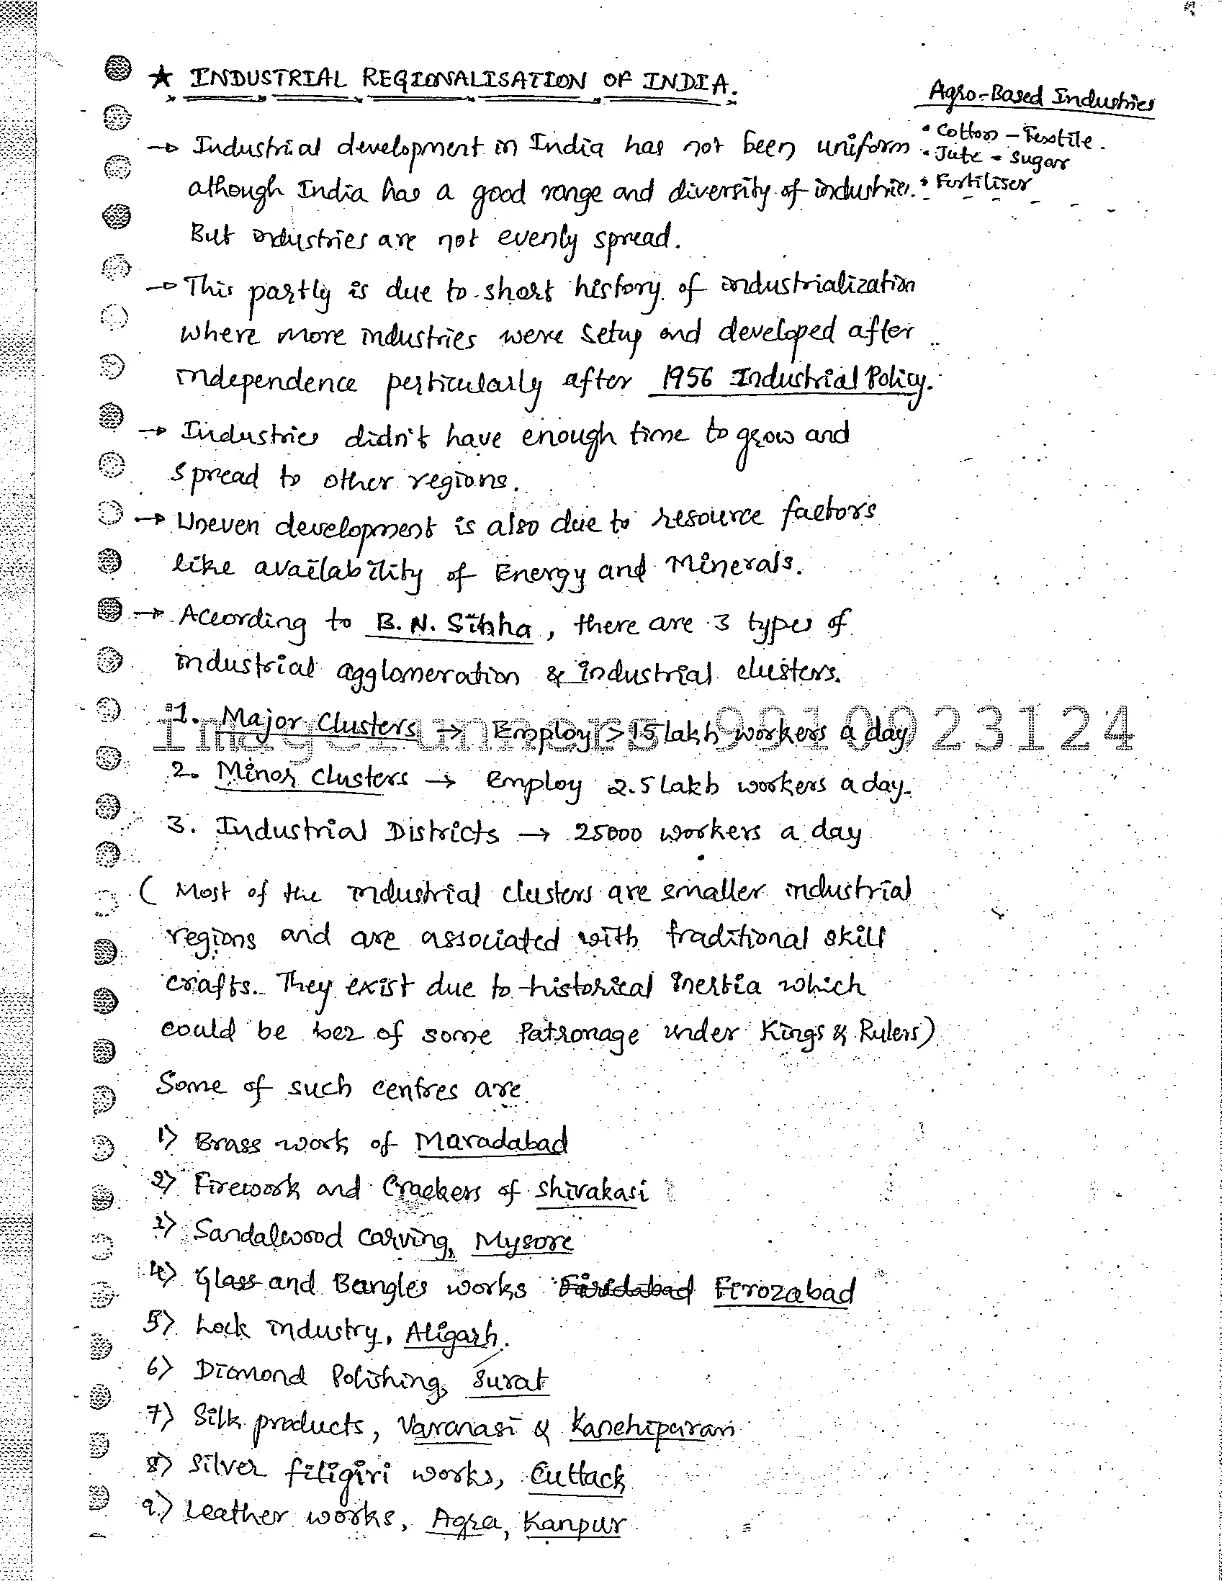 ★ INDUSTRIAL REGIONALISATION OF INDIA.
Agro-Based Industries
• Cotton - Textile.
• Jute • Sugar
• Fertiliser
→ Industrial development in India has not been uniform
although India has a good range and diversity of industries.
But industries are not evenly spread.
→ This partly is due to short history of industrialization
where more industries were setup and developed after
independence perticularly after 1956 Industrial Policy.
→ Industries didn't have enough time to grow and
spread to other regions.
→ Uneven development is also due to resource factors
like availability of Energy and Minerals.
→ According to B. N. Sihha, there are 3 types of
industrial agglomeration & industrial clusters.
1. Major Clusters → Employ > 1.5 lakh workers a day
9910923124
2. Minor Clusters → Employ 2.5 Lakh workers a day.
3. Industrial Districts → 25000 workers a day
( Most of the industrial clusters are smaller industrial
regions and are associated with traditional skill
crafts. They exist due to historical inertia which
could be bez of some Patronage under Kings & Rulers)
Some of such centres are
1) Brass work of Maradabad
2) Firework and Crackers of Shivakasi
3) Sandalwood carving, Mysore
4) Glass and Bangles works Faridabad Firozabad
5) Lock industry, Aligarh.
6) Diamond Polishing, Surat
7) Silk products, Varanasi & Kanchipuram
8) Silver filigiri works, Cuttack
9.) Leather works, Agra, Kanpur